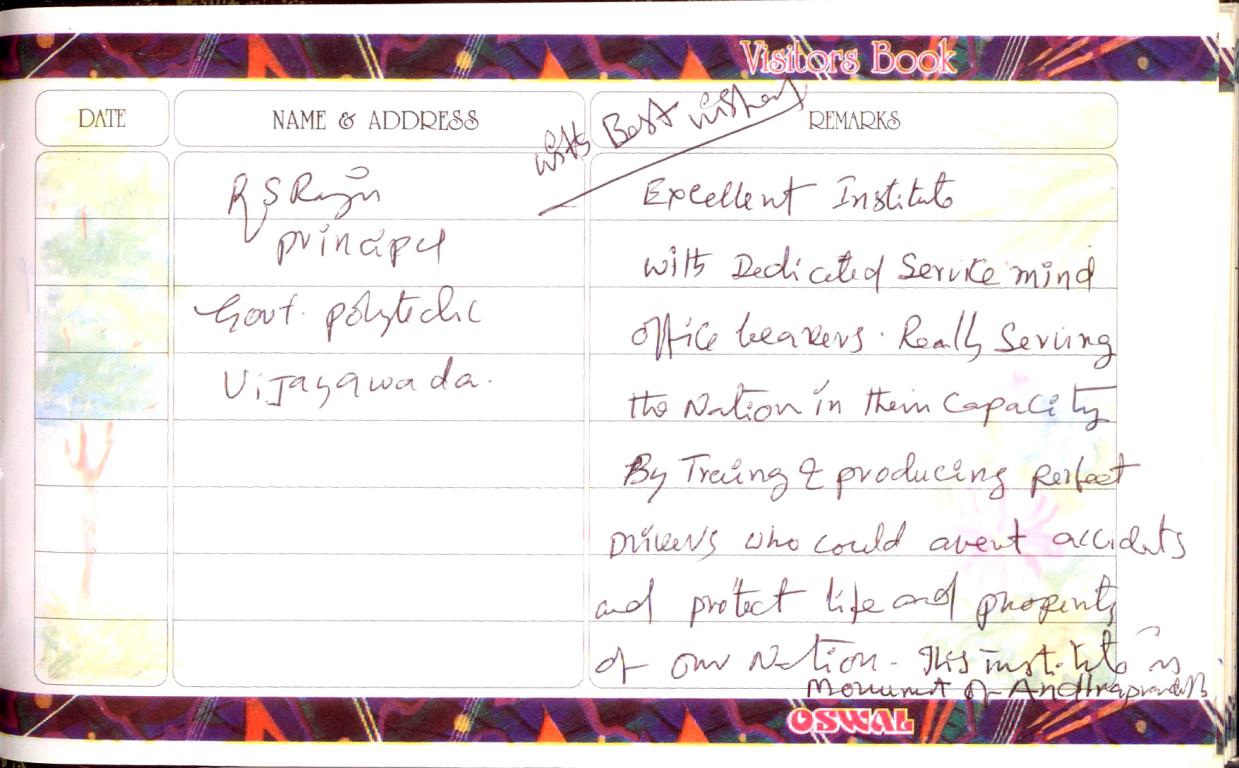 Visitors Book
DATE
NAME & ADDRESS
REMARKS
with Best wishes
R S Raju
principal
Govt. polytechic
Vijayawada.
Excellent Institute
with Dedicated Service mind
office bearers. Really Serving
the Nation in their Capacity
By Traing & producing perfect
Drivers who could avert accidents
and protect life and property
of our Nation. This institute is
Monument of Andhrapradesh
OSWAL